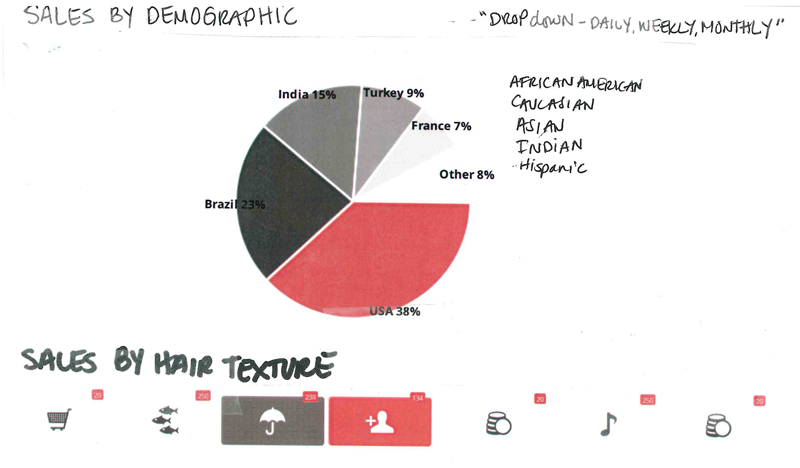 SALES BY DEMOGRAPHIC
-"DROPdOWN - DAILY, WEEKLY, MONTHLY"
India 15%
Turkey 9%
France 7%
Other 8%
Brazil 23%
USA 38%
AFRICAN AMERICAN
CAUCASIAN
ASIAN
INDIAN
Hispanic
SALES BY HAIR TEXTURE
20
250
236
134
20
250
20